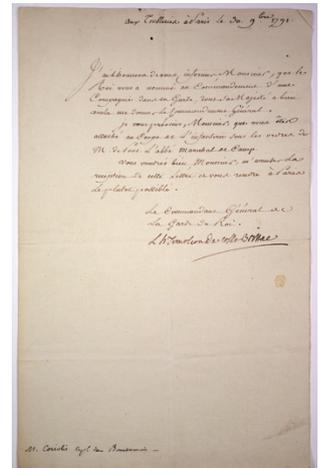 aux Tuileries à Paris le 30 9bre 1791.
J'ai l'honneur de vous informer, Monsieur, que le
Roi vous a nommé au Commandement d'une
Compagnie dans sa Garde, dont Sa Majesté a bien
voulu me donner le Commandement Général.
je vous préviens, Monsieur, que vous êtes
attaché au Corps de l'Infanterie sous les ordres de
M. de Maréchal de Camp.
Vous voudrez bien, Monsieur, m'accuser La
réception de cette Lettre et vous rendre à Paris
Le plutot possible.
Le Commandant Général de
La Garde du Roi.
de Cossé Brissac
M. Cap.